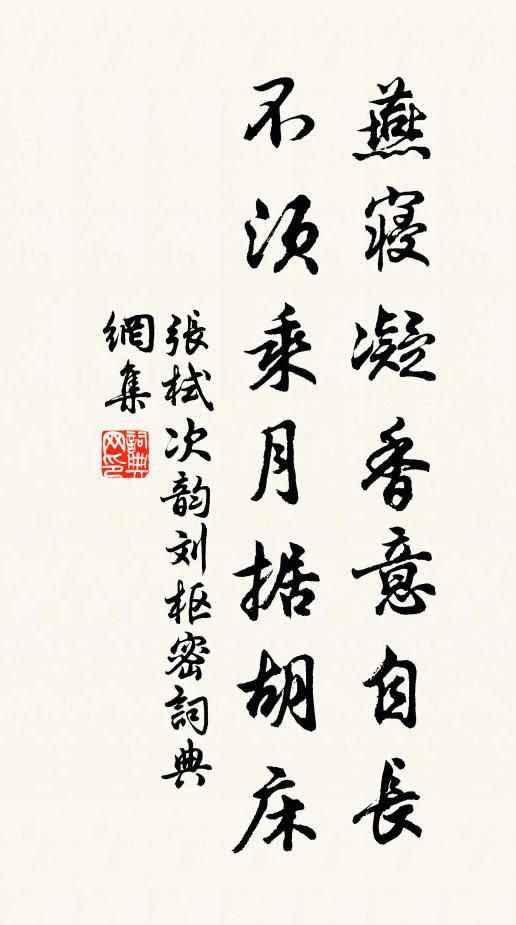 燕寝凝香意自長
不須乘月据胡床
張栻次韵刘枢密詞典
網集
詞典网印